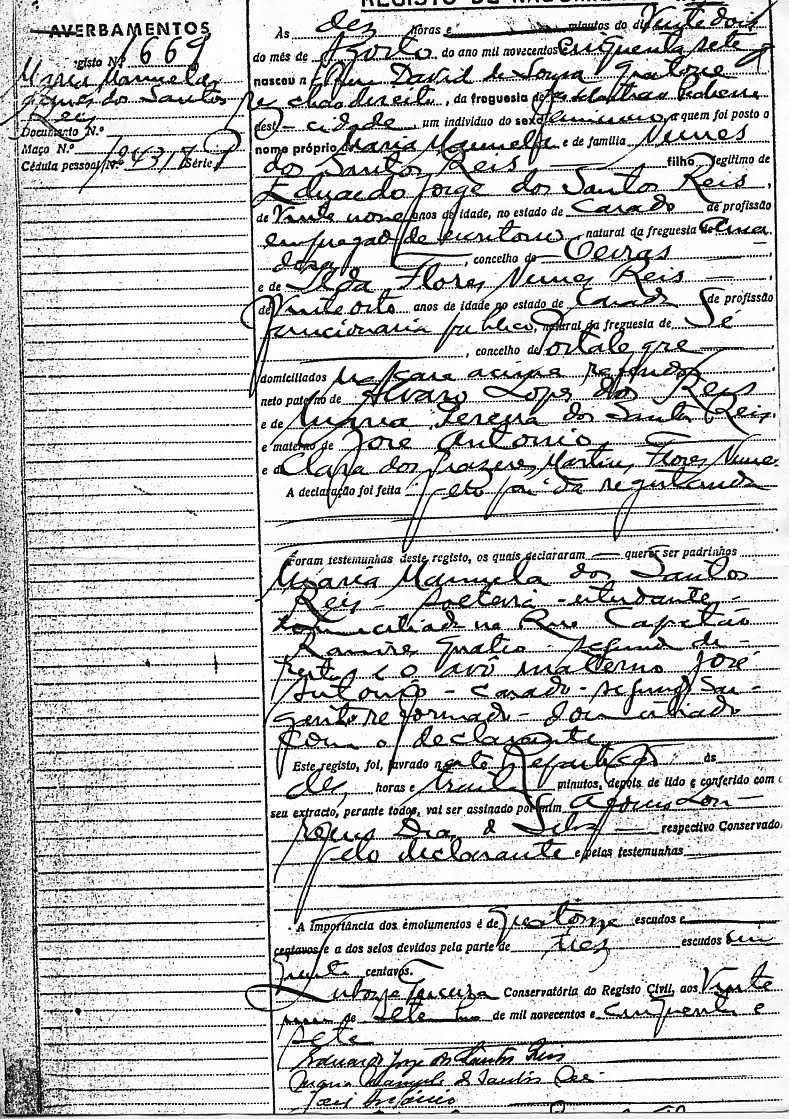 AVERBAMENTOS
Registo N.º 1669
Maria Manuela
Nunes dos Santos
Reis
Documento N.º
Maço N.º
Cédula pessoal N.º Série
Às dez horas e minutos do dia Vinte dois
do mês de Agosto do ano mil novecentos cinquenta sete
nasceu n Rua David de Sousa quatorze
res chão direito, da freguesia de
desta cidade, um indivíduo do sexo feminino a quem foi posto o
nome próprio Maria Manuela e de família Nunes
dos Santos Reis filho legítimo de
Eduardo Jorge dos Santos Reis
de Vinte nove anos de idade, no estado de casado de profissão
empregado de escritório, natural da freguesia de Ama
dora, concelho de Oeiras
e de Ilda Flores Nunes Reis
de Vinte oito anos de idade no estado de casada de profissão
funcionaria publico, natural da freguesia de Sé
, concelho de Portalegre
domiciliados na casa acima referida
neto paterno de Alvaro Lopes dos Reis
e de Maria Pereira dos Santos Reis
e materno de José Antonio
e de Clara dos Prazeres Martins Flores Nunes
A declaração foi feita pelo pai da registanda
Foram testemunhas deste registo, os quais declararam querer ser padrinhos
Maria Manuela dos Santos
Reis - solteira - estudante -
domiciliada na Rua Capitão
Ramires quatro - segundo di-
reito e o avô materno José
Antonio - casado - segundo Sar-
gento reformado - domiciliado
com o declarante
Este registo, foi, lavrado nesta Repartição às
dez horas e trinta minutos, depois de lido e conferido com o
seu extracto, perante todos, vai ser assinado por mim Afonso Lou-
renço Dias da Silva respectivo Conservador
pelo declarante e pelas testemunhas
A importância dos emolumentos é de quatorze escudos e
centavos e a dos selos devidos pela parte de tres escudos
centavos.
Lisboa Terceira Conservatória do Registo Civil, aos Vinte
um de Setembro de mil novecentos e cinquenta e
sete
Eduardo Jorge dos Santos Reis
Maria Manuela dos Santos Reis
José Antonio